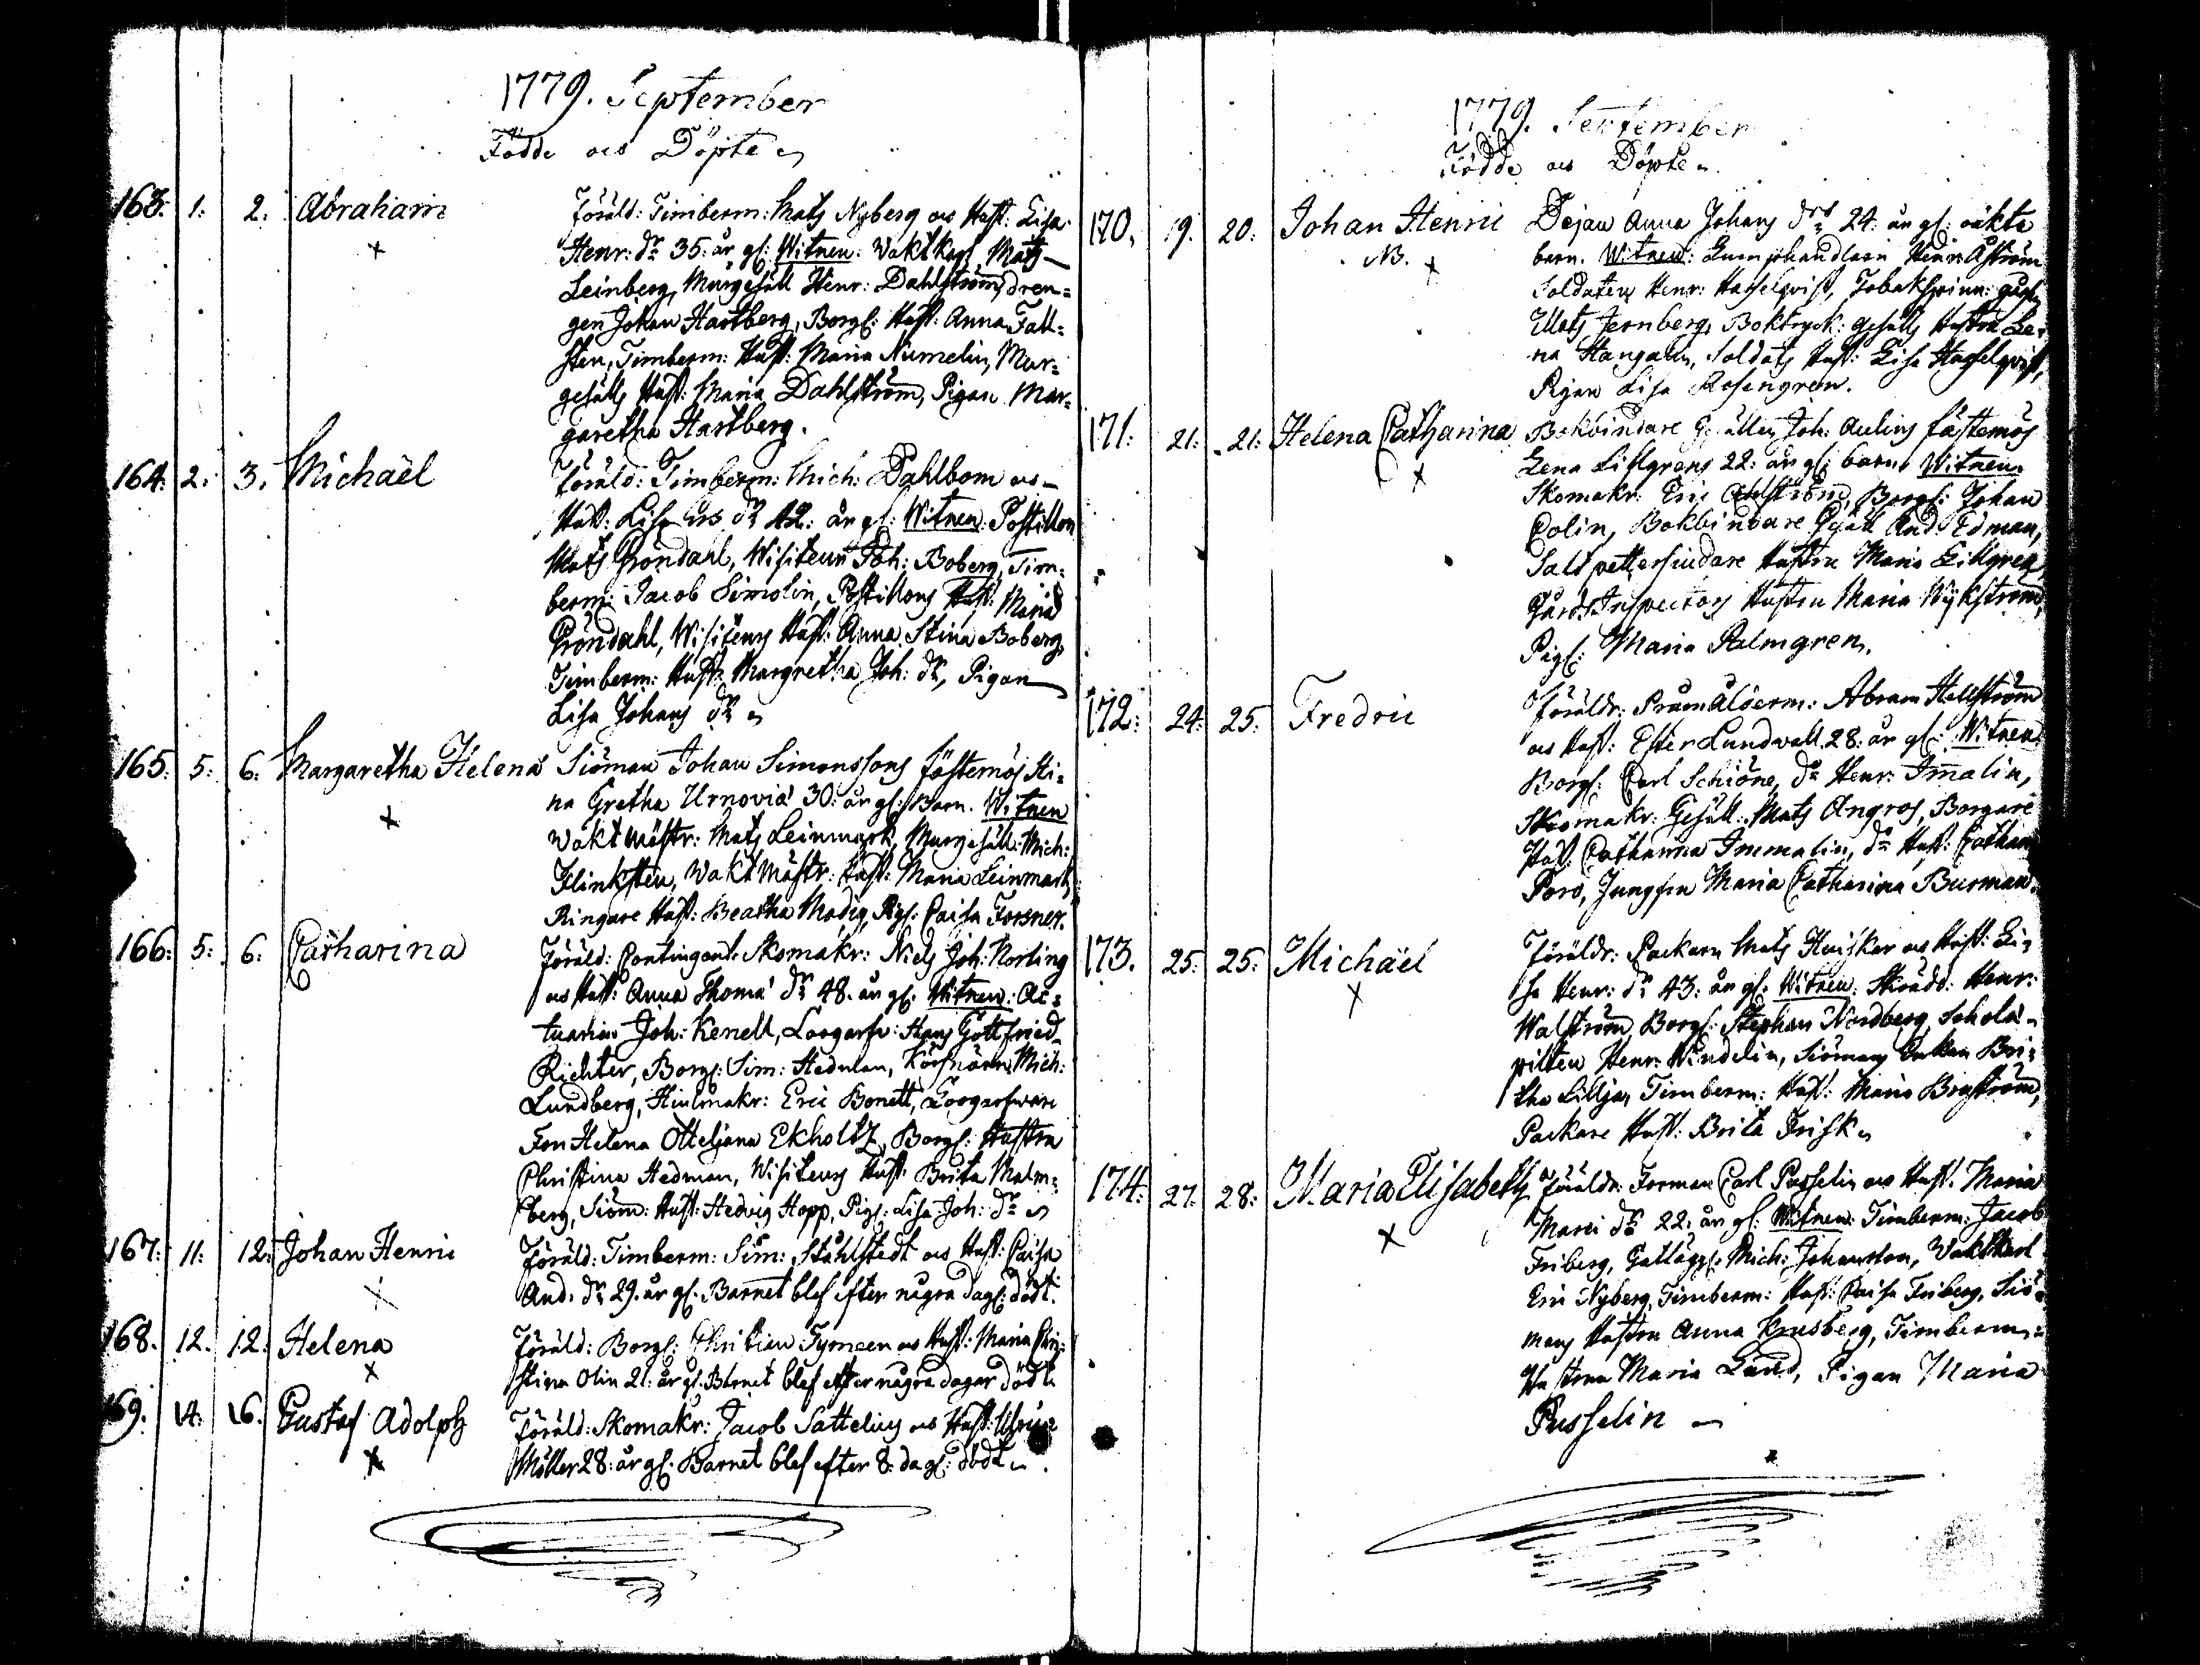 1779. September
Födde och Döpte
163. 1. 2. Abraham Föräld: Timberm: Mats Nyberg och Hust: Lisa
Henr: dr 35: år gl: Witnen: Vaktkarl Mats
Leinberg, Murgesäll Henr: Dahlström, dren=
gen Johan Hartberg, Borgs: Hust: Anna Fall=
sten, Timberm: Hust: Maria Numelin, Mur=
gesälls Hust: Maria Dahlström, Pigan Mar=
garetha Hartberg.
164. 2. 3. Michaël Föräld: Timberm: Mich: Dahlbom och
Hust: Lisa Ers dr 42: år gl: Witnen: Postillon
Mats Gröndahl, Wisiteur Joh: Boberg, Tim=
berm: Jacob Simolin, Postillons Hust: Maria
Gröndahl, Wisiteurs Hust: Anna Stina Boberg,
Timberm: Hust: Margretha Joh: dr, Pigan
Lisa Johans dr
165. 5. 6. Margaretha Helena Siöman Johan Simonssons fästemös Sti=
na Gretha Urnovia 30: år gl: Barn. Witnen
Vaktmästr: Mats Leinmark, Murgesäll: Mich:
Flinksten, Vaktmästr: Hust: Maria Leinmark,
Ringare Hust: Beatha Modig, Pigs: Caisa Forsner.
166. 5. 6. Catharina Föräld: Contingent. Skomakr: Nils Joh: Norling
och Hust: Anna Thoma dr 48. år gl. Witnen: Ac=
tuarien Joh: Kenell, Loogarfv: Hans Gottfried
Richter, Borgs: Sim: Hedman, Mich:
Lundberg, Hiulmakr: Eric Bonett, Loogarfware
Fru Helena Otteljana Ekholtz, Borgs: Hustru
Christina Hedman, Wisiteurs Hust: Brita Malm=
berg, Siöm: Hust: Hedvig Hopp, Pigs: Lisa Joh: dr
167. 11. 12. Johan Henric Föräld: Timberm: Sim: Ståhlstedt och Hust: Caisa
And. dr 29. år gl. Barnet blef efter några dags: dödt.
168. 12. 12. Helena Föräld: Borgs: Christian Tymeen och Hust: Maria Chri=
stina Olin 21: år gl. Barnet blef efter några dagar dödt
169. 14. 16. Gustaf Adolph Föräld: Skomakr: Jacob Sattelius och Hust: Ulrica
Möller 28: år gl. Barnet blef efter 8: dags: dödt
1779. September
Födde och Döpte
170. 19. 20. Johan Henric Dejan Anna Johans dr 24: år gl: oäkta
NB. barn. Witnen: Henr: Åström
Soldaten Henr: Hasselqvist, Tobakspinn:
Mats Jernberg, Boktryck: gesälls Hustru Le=
na Stangalin, Soldats Hust: Lisa Hasselqvist,
Pigan Lisa Rosengren.
171. 21. 21. Helena Catharina Bokbindare Gesällen Joh: Aulins fästemös
Lena Lillgrens 22: år gl: barn, Witnen.
Skomakr: Eric Ahlström, Borgs: Johan
Colin, Bokbindare Gesäll And: Edman,
Saltpettersiudare Hustru Maria Lillgren
Gårds Inspectors Hustru Maria Wykström,
Pigs: Maria Palmgren.
172. 24. 25. Fredric Föräldr: Pråm Ålderm: Abram Hellström
och Hust: Ester Lundwall 28: år gl: Witnen
Borgs: Carl Schiöne, do Henr: Imalin,
Skomakr: Gesäll: Mats Angros, Borgare
Hust: Catharina Immalin, do Hust: Cathar:
Pors, Jungfru Maria Catharina Burman.
173. 25. 25. Michaël Föräldr: Packarn Mats Huisker och Hust: Li=
sa Henr: dr 43: år gl. Witnen: Skrädd: Henr:
Walström, Borgs: Stephan Nordberg, Schola
pilten Henr: Windelin, Siömans Enkan Bri=
tha Lillja, Timberm: Hust: Maria Broström,
Packare Hust: Brita Frisk
174. 27. 28. Maria Elisabeth Föräldr: Forman Carl Pusselin och Hust. Maria
Marci dr 22: år gl: Witnen: Timberm: Jacob
Friberg, Mich: Johansson, Vaktkarl
Eric Nyberg, Timberm: Hust: Caisa Friberg, Siö=
mans Hustru Anna Krusberg, Timberm:
Hustru Maria Lund, Pigan Maria
Pusselin